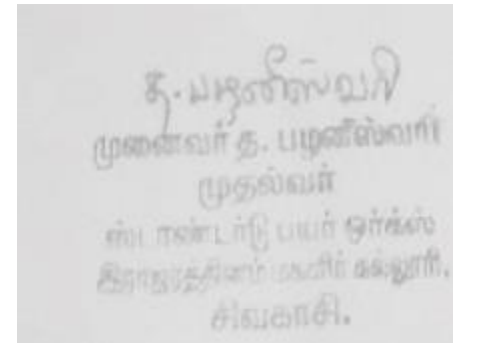 த. பழனீஸ்வரி
முனைவர் த. பழனீஸ்வரி
முதல்வர்
ஸ்டாண்டர்டு பயர் ஒர்க்ஸ்
இராஜரத்தினம் மகளிர் கல்லூரி,
சிவகாசி.